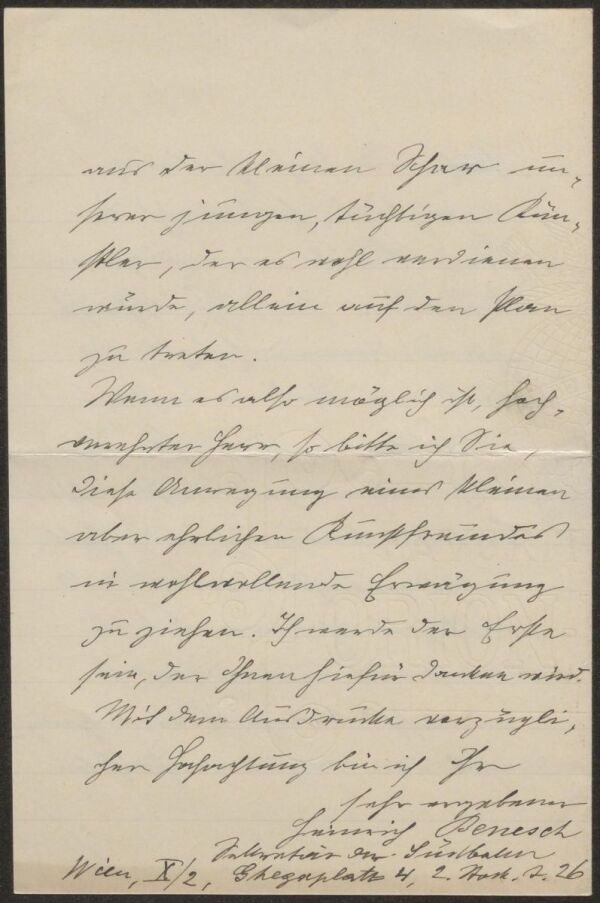 aus der kleinen Schar un-
serer jungen, tüchtigen Kün-
stler, der es wohl verdienen
würde, allein auf den Plan
zu treten.
Wenn es also möglich ist, hoch-
verehrter Herr, so bitte ich Sie,
diese Anregung eines kleinen
aber ehrlichen Kunstfreundes
in wohlwollende Erwägung
zu ziehen. Ich werde der Erste
sein, der Ihnen hiefür danken wird.
Mit dem Ausdrucke vorzügli-
cher Hochachtung bin ich Ihr
sehr ergebener
Heinrich Benesch
Sekretär der Südbahn
Wien, X/2, Ghegaplatz 4, 2. Stock, T. 26